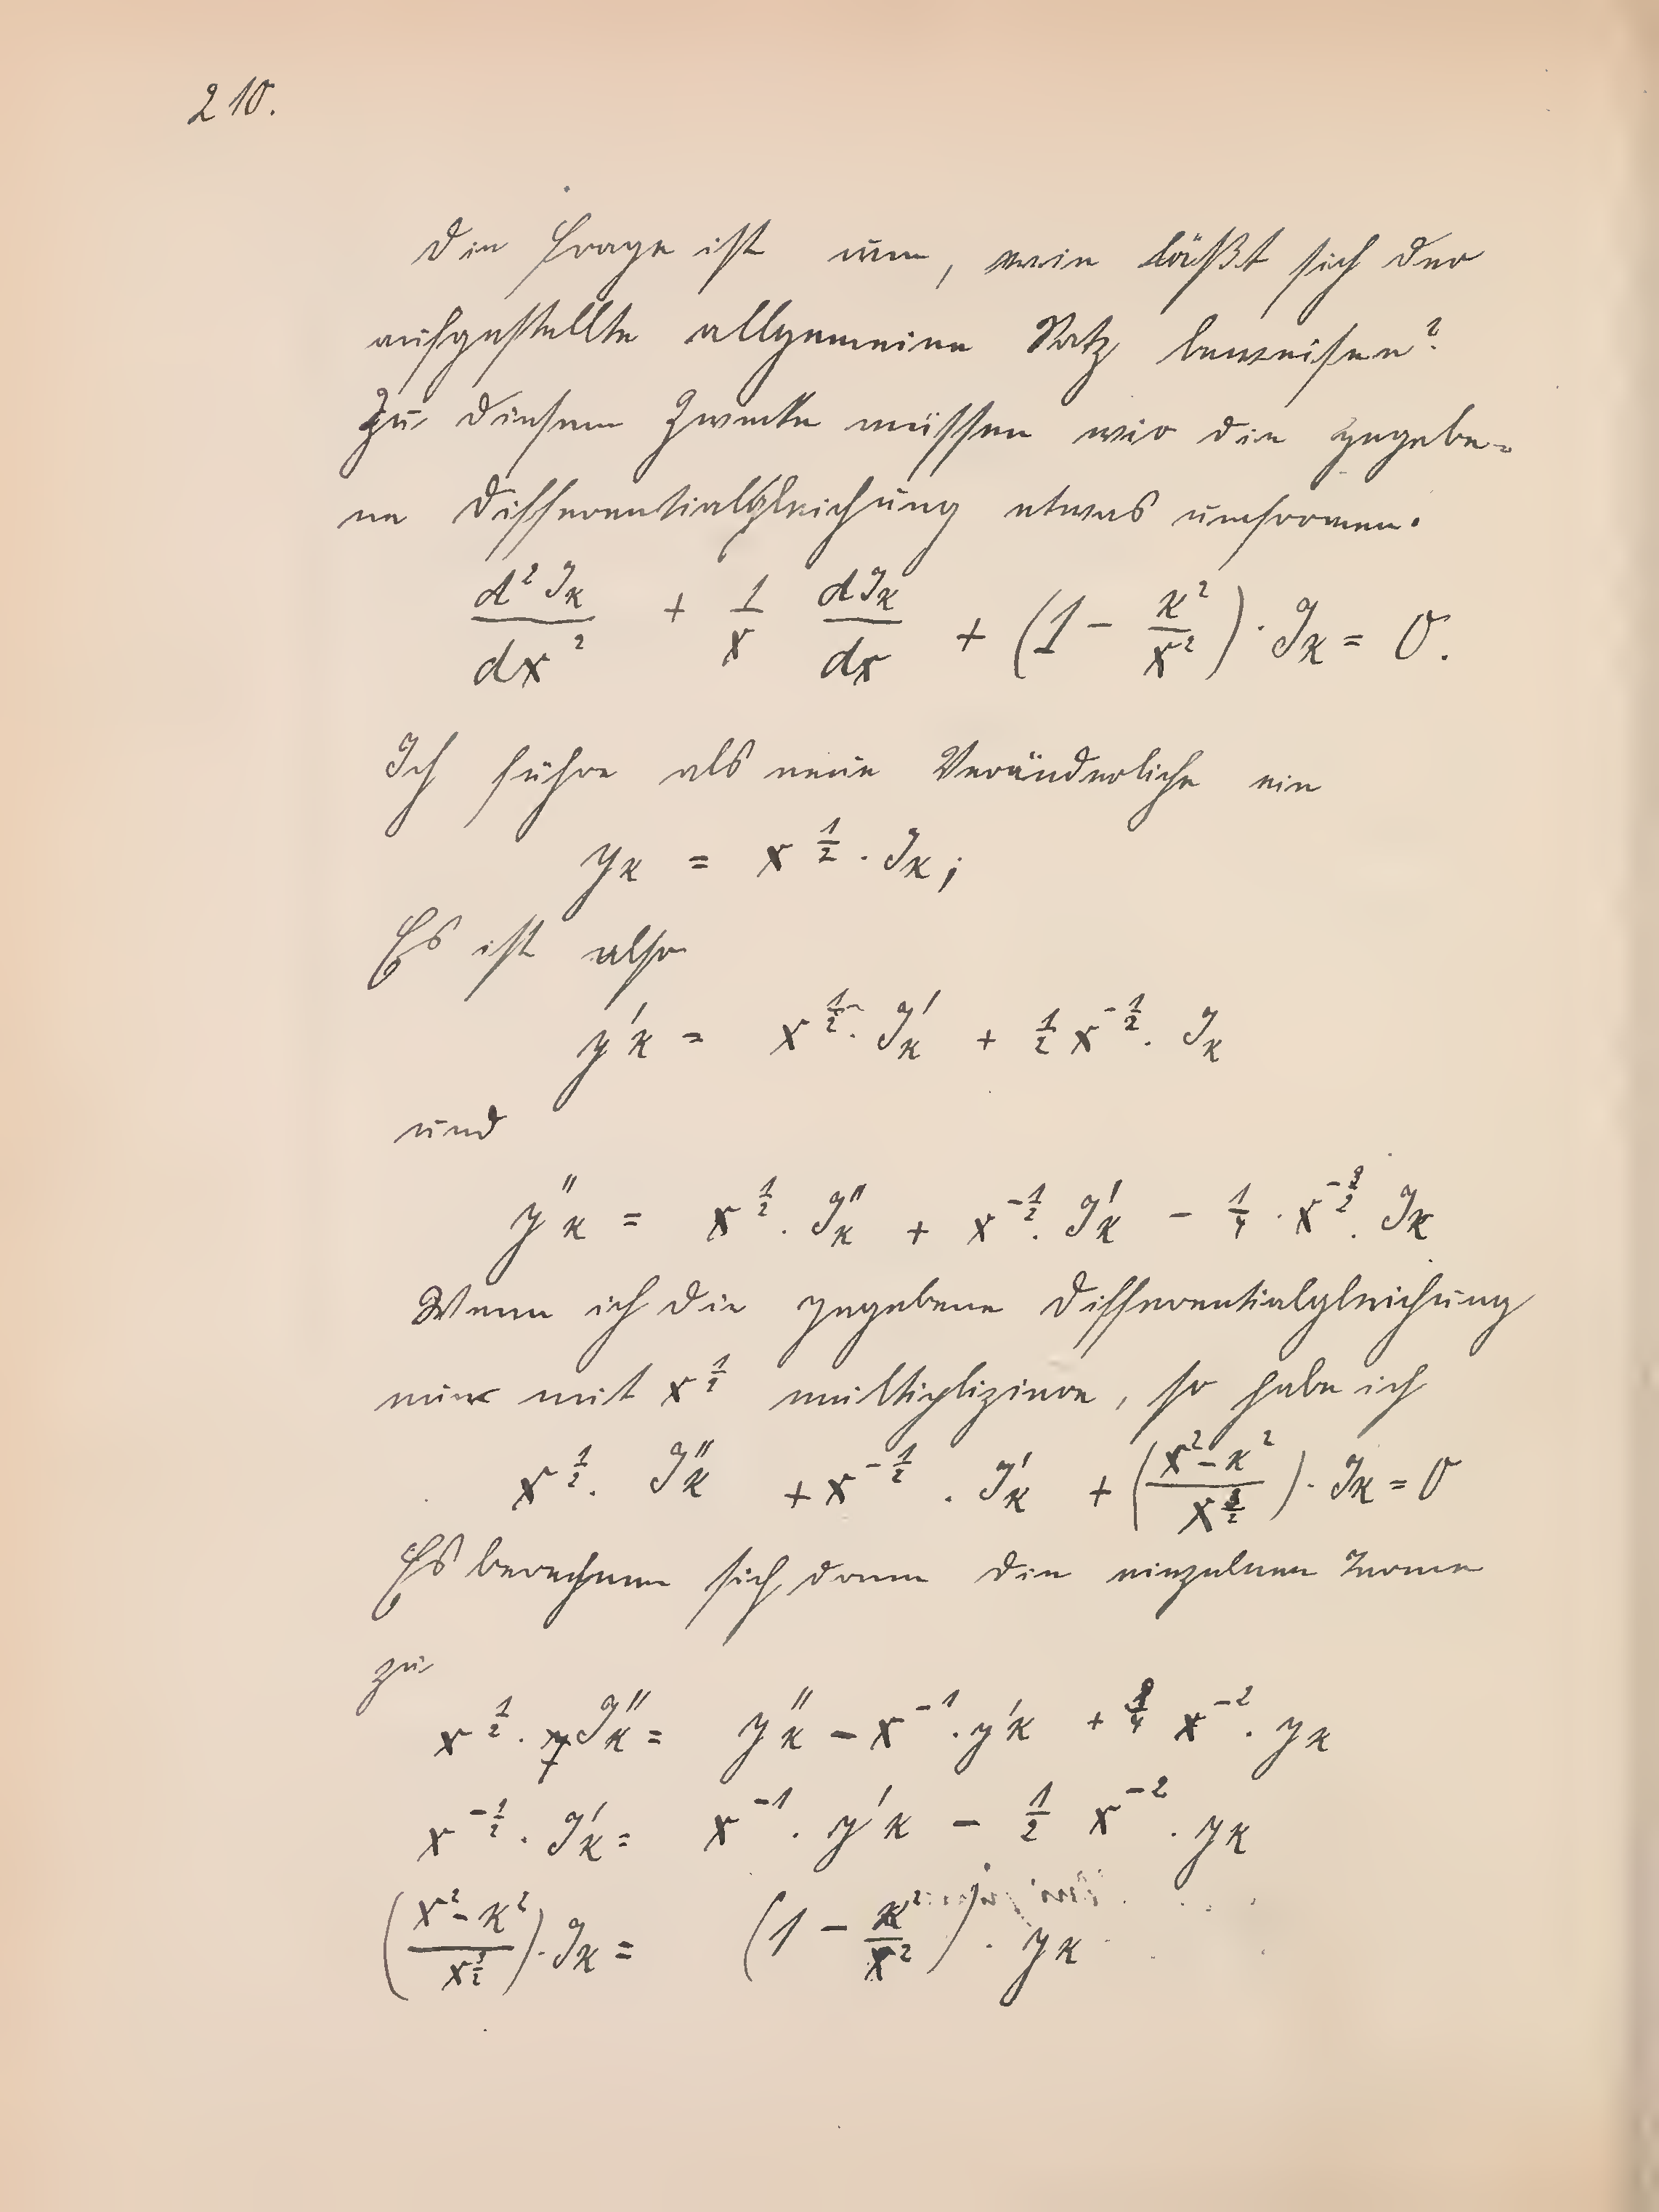 210.
Die Frage ist nun, wie läßt sich der
aufgestellte allgemeine Satz beweisen?
Zu diesem Zwecke müssen wir die gegebe-
ne Differentialgleichung etwas umformen.
d²J_κ/dx² + 1/x dJ_κ/dx + (1 - κ²/x²) · J_κ = 0.
Ich führe als neue Veränderliche ein
y_κ = x^{1/2} · J_κ;
Es ist also
y'_κ = x^{1/2} · J'_κ + 1/2 x^{-1/2} · J_κ
und
y''_κ = x^{1/2} · J''_κ + x^{-1/2} · J'_κ - 1/4 · x^{-3/2} · J_κ
Wenn ich die gegebene Differentialgleichung
nun mit x^{1/2} multipliziere, so habe ich
x^{1/2} · J''_κ + x^{-1/2} · J'_κ + (x² - κ² / x^{3/2}) · J_κ = 0
Es berechnen sich dann die einzelnen Terme
zu
x^{1/2} · J''_κ = y''_κ - x^{-1} · y'_κ + 3/4 x^{-2} · y_κ
x^{-1/2} · J'_κ = x^{-1} · y'_κ - 1/2 x^{-2} · y_κ
(x² - κ² / x^{3/2}) · J_κ = (1 - κ²/x²) · y_κ